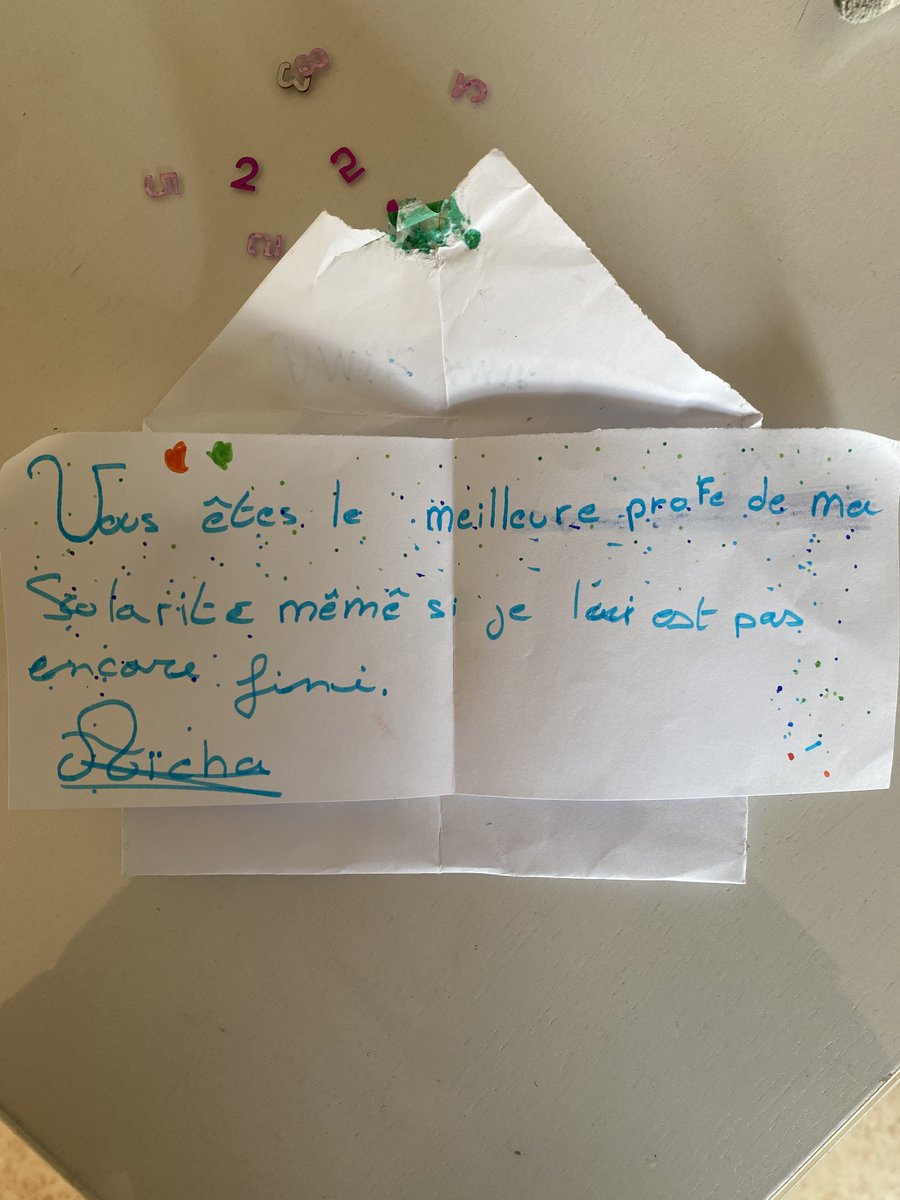 3
8
5
5
2
2
2
Vous êtes le meilleure profe de ma
Scolarite mêmê si je l'ai est pas
encore fini.
Aïcha